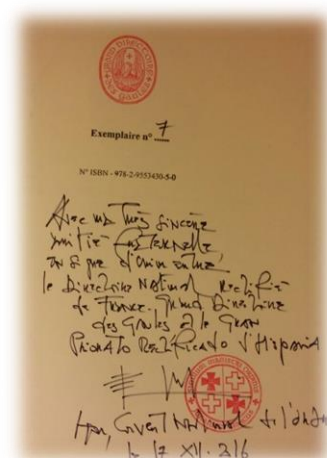 GRAND DIRECTOIRE
DES GAULES
Exemplaire n° 7
N° ISBN - 978-2-9553430-5-0
Avec ma très sincère
amitié fraternelle,
en signe d'union entre
le Directoire National Rectifié
de France, Grand Directoire
des Gaules et le Gran
Priorato Rectificado d'Hispania
Lyon, Couvent National de
le 17 XII. 2016